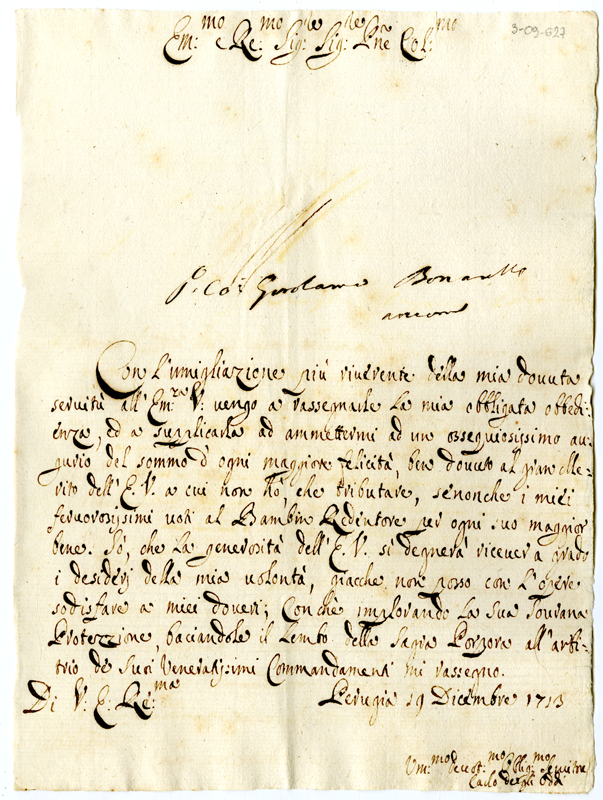 Em:mo e Re:mo Sig:re Sig:re Pñe Col:mo
3-09-627
Co: Girolamo Bonarelli
Con l'umigliazione più riverente della mia dovuta
servitù all'Em:ra V: vengo a rassegnarle la mia obbligata obbedi:
enza, ed a supplicarla ad ammettermi ad un ossequiosissimo au-
gurio del sommo d'ogni maggiore felicità, ben dovuto al gran Me-
rito dell'E. V. a cui non hò, che tributare, senonche i miei
fervorosissimi voti al Bambin Redentore per ogni suo maggior
bene. Sò, che la generosità dell'E. V. si degnerà ricever a grado
i desiderj della mia volontà, giacche non posso con l'opere
sodisfare a miei doveri; Conchè implorando la sua sourana
Protezzione, baciandole il lembo della Sagra Porpora all'arbi-
trio de suoi Veneratissimi Commandamenti mi rassegno.
Di V: E: Re:ma Perugia 19 Dicembre 1713
Um:mo Devot:mo Obblig:mo Servitore
Carlo degli Oddi